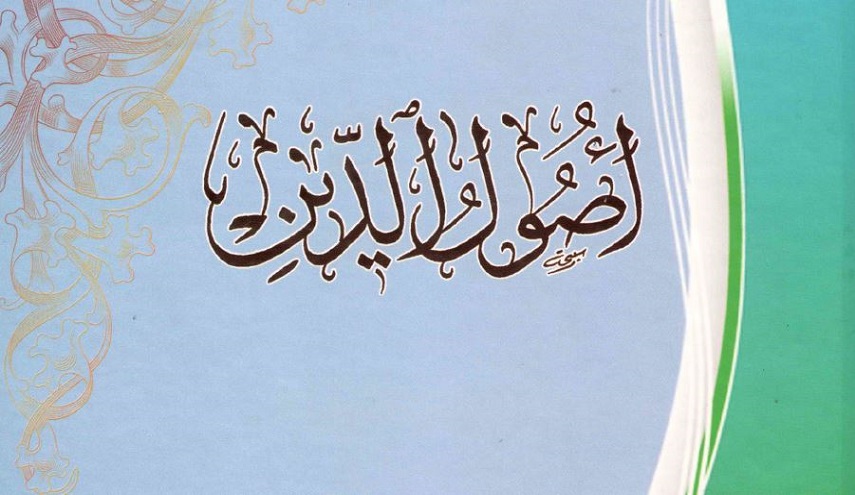 أُصُولُ ٱلدِّينِ